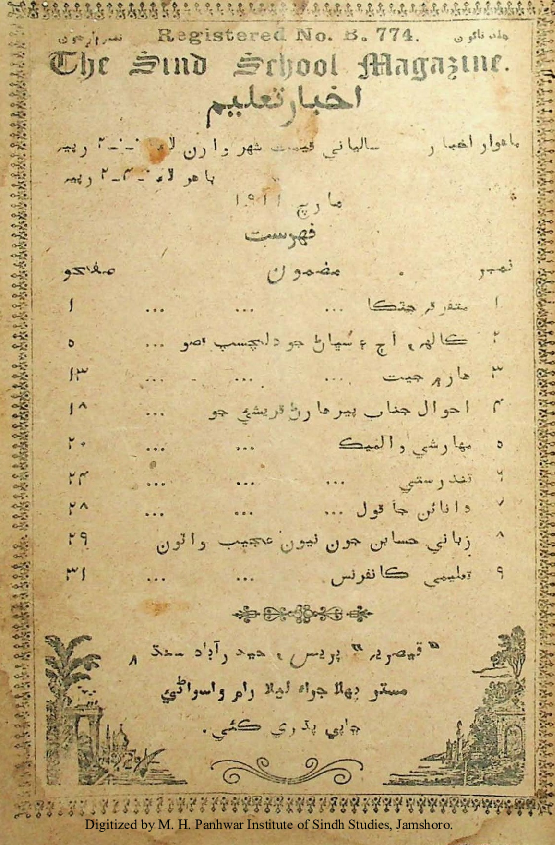 Registered No. B. 774.
The Sind School Magazine.
اخبار تعليم
ماهوار اخبار سالياني قيمت شهر وارن لاءِ ٢-٠-٠ رپيه
ٻاهر لاءِ ٢-٤-٠ رپيه
مارچ ١٩١١
فهرست
نمبر مضمون صفحو
١ متفرقه ... ... ... ١
٢ ڪالهه، اڄ ۽ سُڀاڻ جو دلچسپ قصو ... ٥
٣ هار ۾ جيت ... ... ... ١٣
٤ احوال جناب پير هارڻ قريشيءَ جو ... ١٨
٥ مهارشي والميڪ ... ... ٢٠
٦ تندرستي ... ... ... ٢٤
٧ دانائن جا قول ... ... ... ٢٨
٨ زباني حسابن جون نيون عجيب واٽون ٢٩
٩ تعليمي ڪانفرنس ... ... ٣١
"قيصريه" پريس، حيدرآباد سنڌ ۾
مستر ڀهلاجراءِ ليلارام واسواڻي
ڇاپي پڌري ڪئي.
Digitized by M. H. Panhwar Institute of Sindh Studies, Jamshoro.